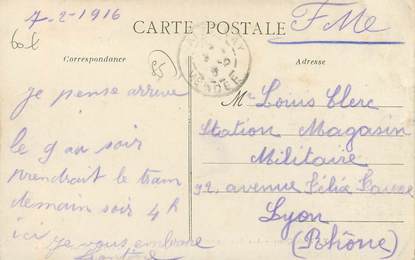 7-2-1916
CARTE POSTALE
FMe
Correspondance
Adresse
85
VENDÉE
je pense arrivé
le 9 au soir
prendrait le tram
demain soir 4h
ici je vous embrasse
Mr Louis Clerc
Station Magasin
Militaire
92, avenue Félix Faure
Lyon
(Rhône)